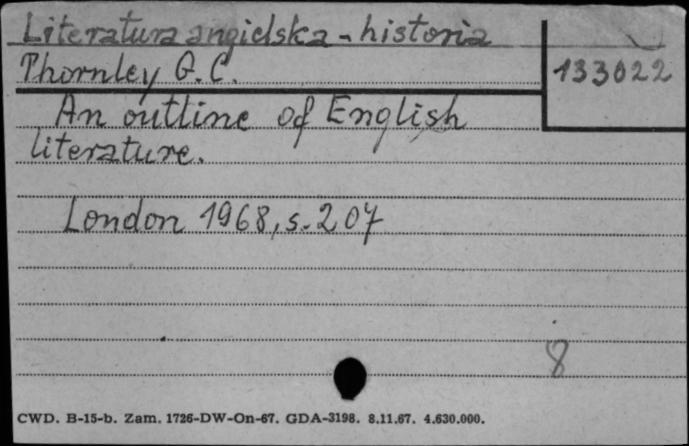 Literatura angielska - historia
Thornley G.C.
133022
An outline of English
literature.
London 1968, s. 207
8
CWD. B-15-b. Zam. 1726-DW-On-67. GDA-3198. 8.11.67. 4.630.000.